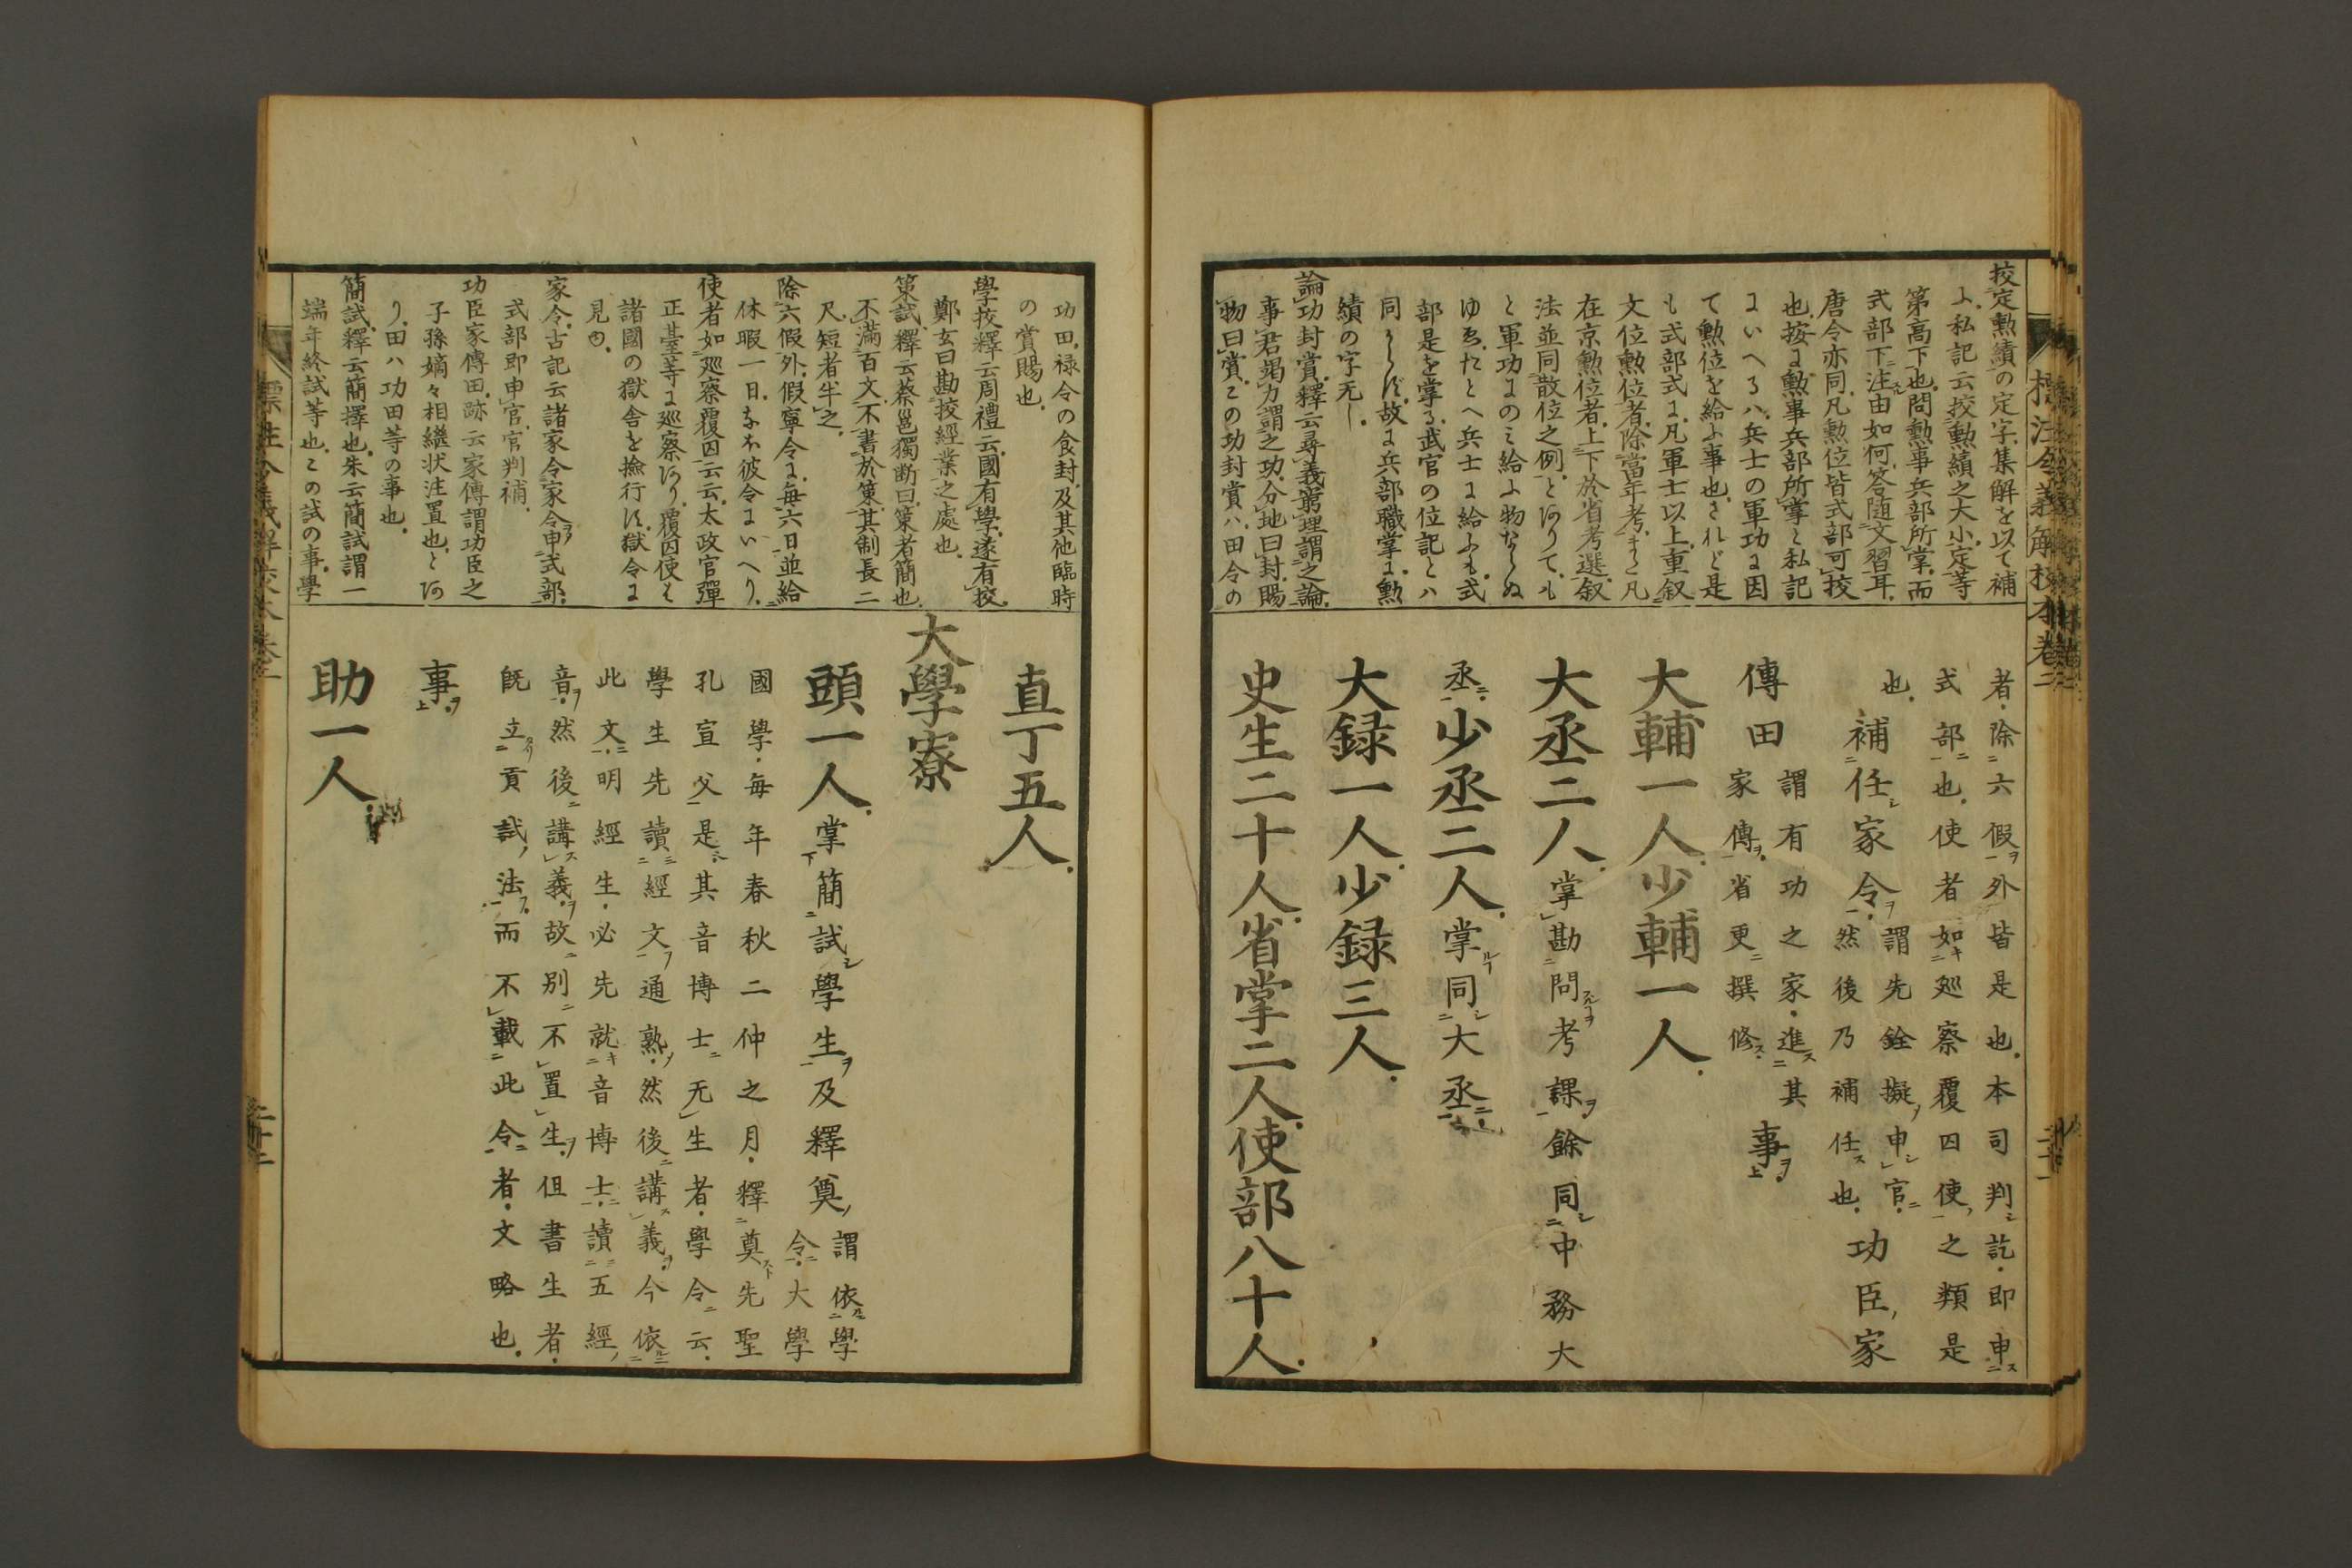 標注令義解校本卷二
二十一
挍定勲績の定字、集解を以て補
ふ、私記云挍勲績之大小定等
第高下也、問勲事兵部所掌、而
式部下注由如何、答随文習耳、
唐令亦同、凡勲位皆式部可挍
也、按に勲事兵部所掌と私記
にいへるハ、兵士の軍功に因
て勲位を給ふ事也、されど是
も式部式に、凡軍士以上重叙
文位勲位者、除當年考、また凡
在京勲位者、上下於省考選、叙
法並同散位之例、とありて、も
と軍功にのミ給ふ物ならぬ
ゆゑ、たとへ兵士に給ふも、式
部是を掌る、武官の位記とハ
同からず、故に兵部職掌に、勲
績の字无し、
論功封賞、釋云尋義窮理謂之論、
事君竭力謂之功、分地曰封、賜
物曰賞、この功封賞ハ、田令の
者・除六假外皆是也、本司判訖・即申
式部也、使者如廵察覆囚使之類是
也、
補任家令、
謂先銓擬申官・
然後乃補任也、
功臣家
傳田
謂有功之家・進其
家傳、省更撰修、
事、
大輔一人、少輔一人、
大丞二人、掌勘問考課、餘同中務大
丞、少丞二人、掌同大丞、
大録一人、少録三人、
史生二十人、省掌二人、使部八十人、
功田、禄令の食封、及其他臨時
の賞賜也、
學挍釋云周禮云、國有學、遂有挍、
鄭玄曰勘挍經業之處也、
策試、釋云蔡邕獨断曰、策者簡也、
不滿百文、不書於策、其制長二
尺、短者半之、
除六假外、假寧令に、毎六日並給
休暇一日、なほ彼令にいへり、
使者如廵察覆囚云云、太政官彈
正䑓等に廵察あり、覆囚使も
諸國の獄舎を撿行す、獄令に
見ゆ、
家令、古記云諸家令家令申式部、
式部即申官、官判補、
功臣家傳田、跡云家傳謂功臣之
子孫嫡々相繼状注置也、とあ
り、田ハ功田等の事也、
簡試、釋云簡擇也、朱云簡試謂一
端年終試等也、この試の事、學
直丁五人、
大學寮
頭一人、掌簡試學生、及釋奠、
謂依學
令・大學
國學・毎年春秋二仲之月・釋奠先聖
孔宣父是、其音博士无生者・學令云、
學生先讀經文通熟・然後講義、今依
此文、明經生・必先就音博士・讀五經
音、然後講義、故別不置生、但書生者・
既立貢試法、而不載此令者・文略也、
事、
助一人、
二十二